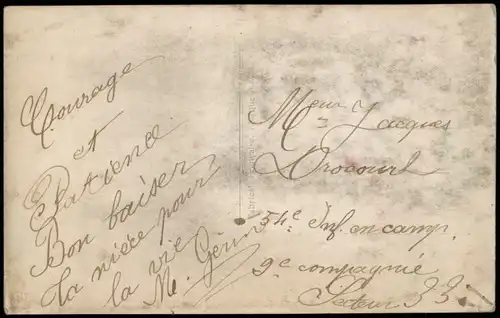 Courage
et
Patience
Bon baiser
ta nièce pour
la vie
M. Génin
Mr Jacques
Drocourt
54e Inf. en camp.
9e compagnie
Secteur 33